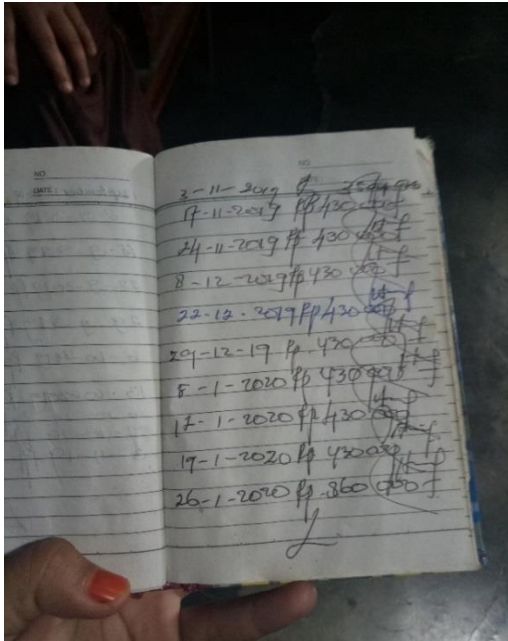 NO
DATE
NO
3-11-2019
17-11-2019 Rp 430 000
24-11-2019 Rp 430 000
8-12-2019 Rp 430 000
22-12-2019 Rp 430 000
29-12-19 Rp. 430 000
5-1-2020 Rp 430 000
12-1-2020 Rp 430 000
19-1-2020 Rp 430 000
26-1-2020 Rp. 860 000